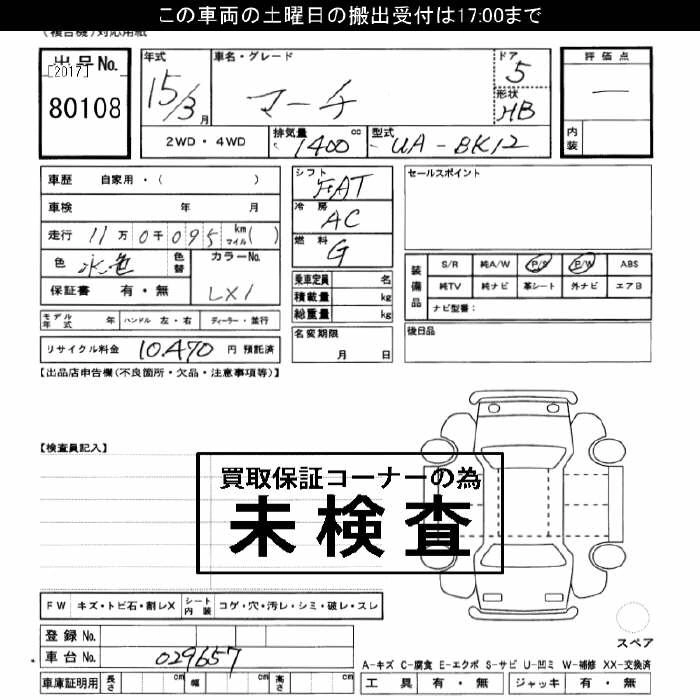 この車両の土曜日の搬出受付は17:00まで
(複合機)対応用紙
出品No. [2017] 80108
年式 15/3月
車名・グレード マーチ
ドア 5
形状 HB
評価点 —
内装
2WD・4WD
排気量 1400 cc
型式 UA-BK12
車歴 自家用・( )
車検 年 月
走行 11万0千095 km マイル( )
色 水色 色替
カラーNo. LX1
保証書 有・無
モデル年式 年 ハンドル 左・右 ディーラー・並行
リサイクル料金 10,470 円 預託済
シフト FAT
冷房 AC
燃料 G
乗車定員 名
積載量 kg
総重量 kg
名変期限 月 日
セールスポイント
装備品 S/R 純A/W P/S P/W ABS
純TV 純ナビ 革シート 外ナビ エアB
ナビ型番:
後日品
【出品店申告欄(不良箇所・欠品・注意事項等)】
【検査員記入】
買取保証コーナーの為
未検査
FW キズ・トビ石・割レX シート内装 コゲ・穴・汚レ・シミ・破レ・スレ
登録No.
車台No. 029657
車庫証明用 長さ cm 幅 cm 高さ cm
スペア
A-キズ C-腐食 E-エクボ S-サビ U-凹ミ W-補修 XX-交換済
工具 有・無 ジャッキ 有・無